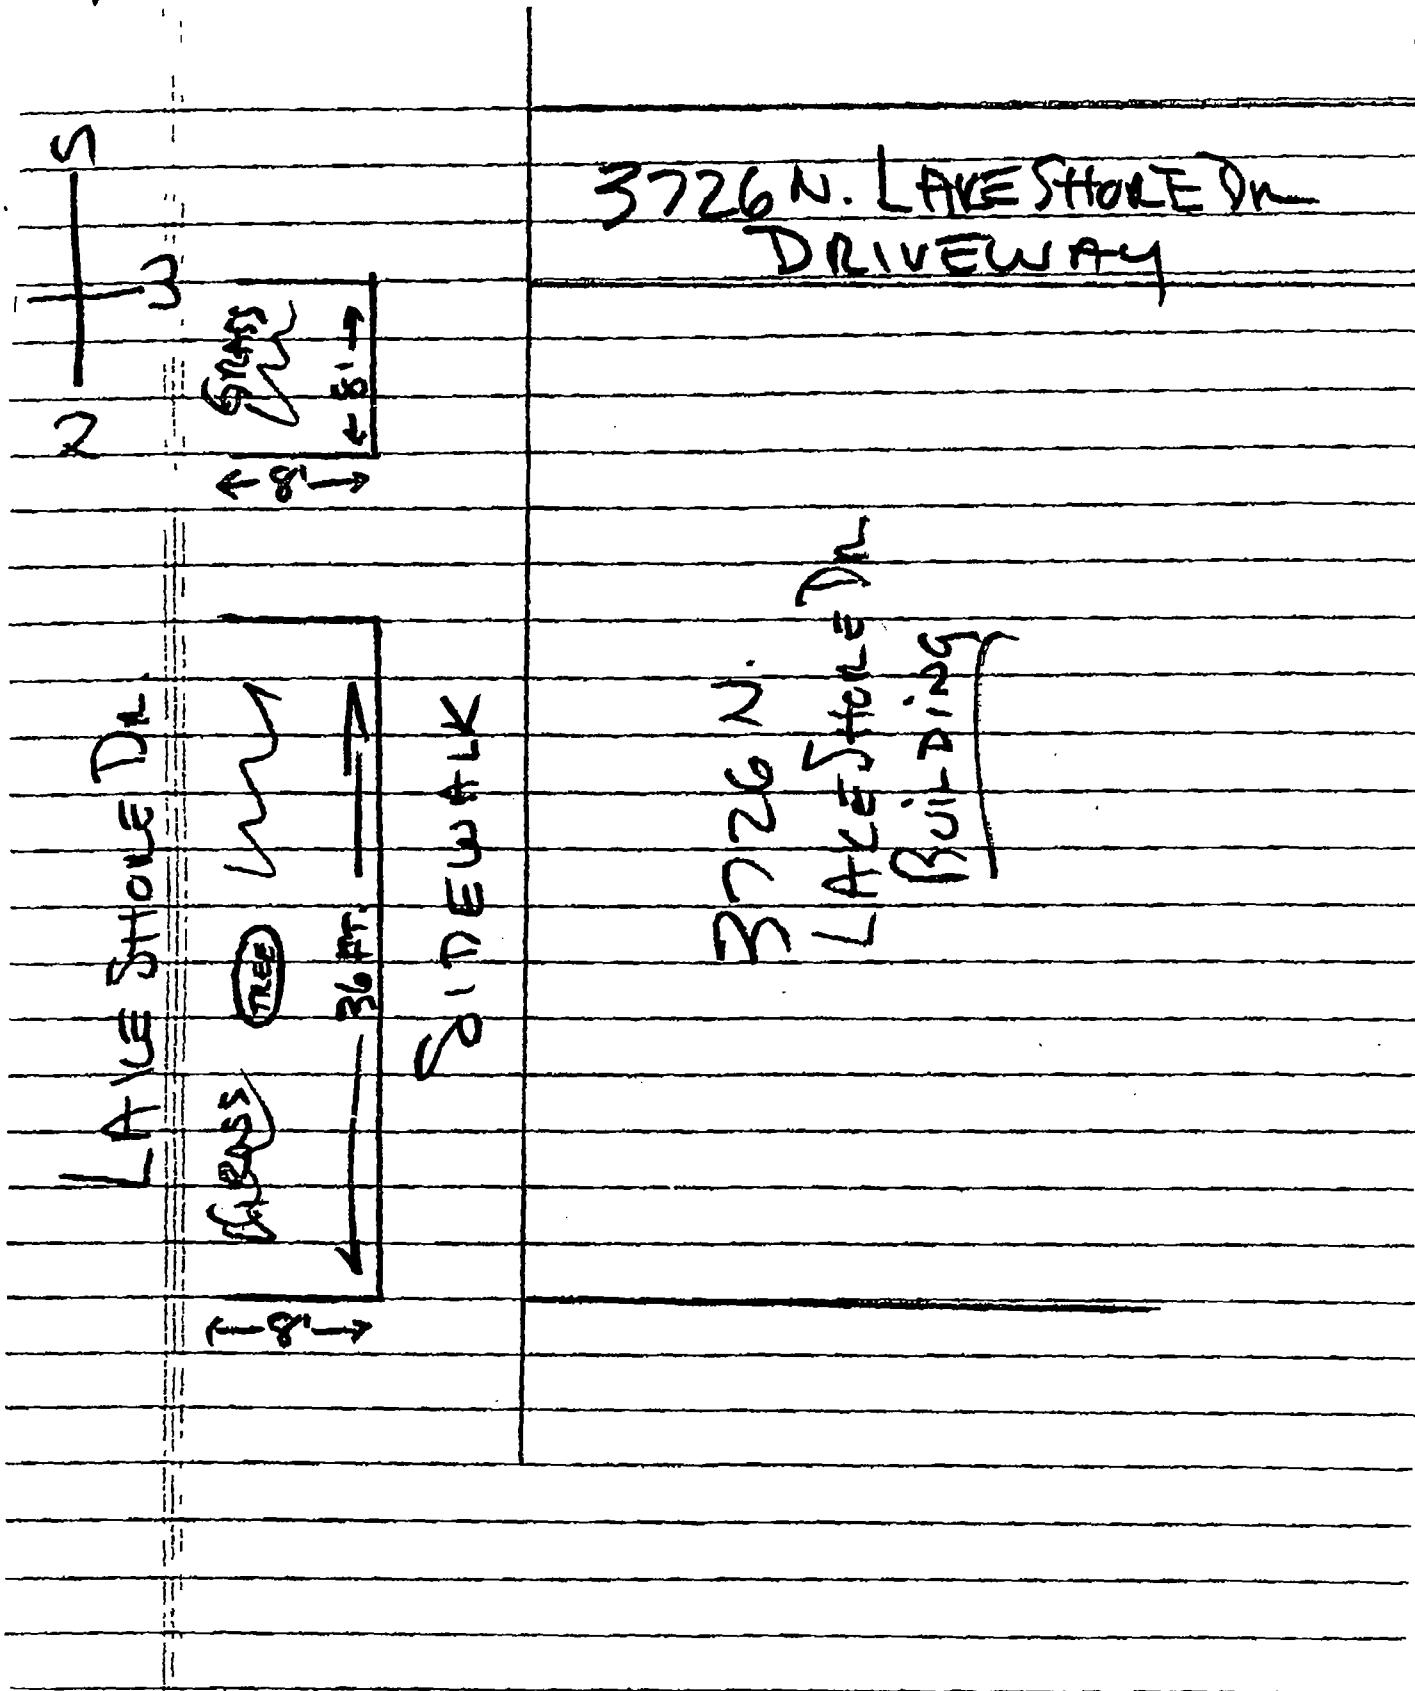 S
W
N
3726 N. LAKE SHORE DR
DRIVEWAY
GRASS
8'
8'
LAKE SHORE DR.
GRASS
TREE
36 FT.
8'
SIDEWALK
3726 N.
LAKE SHORE DR
BUILDING